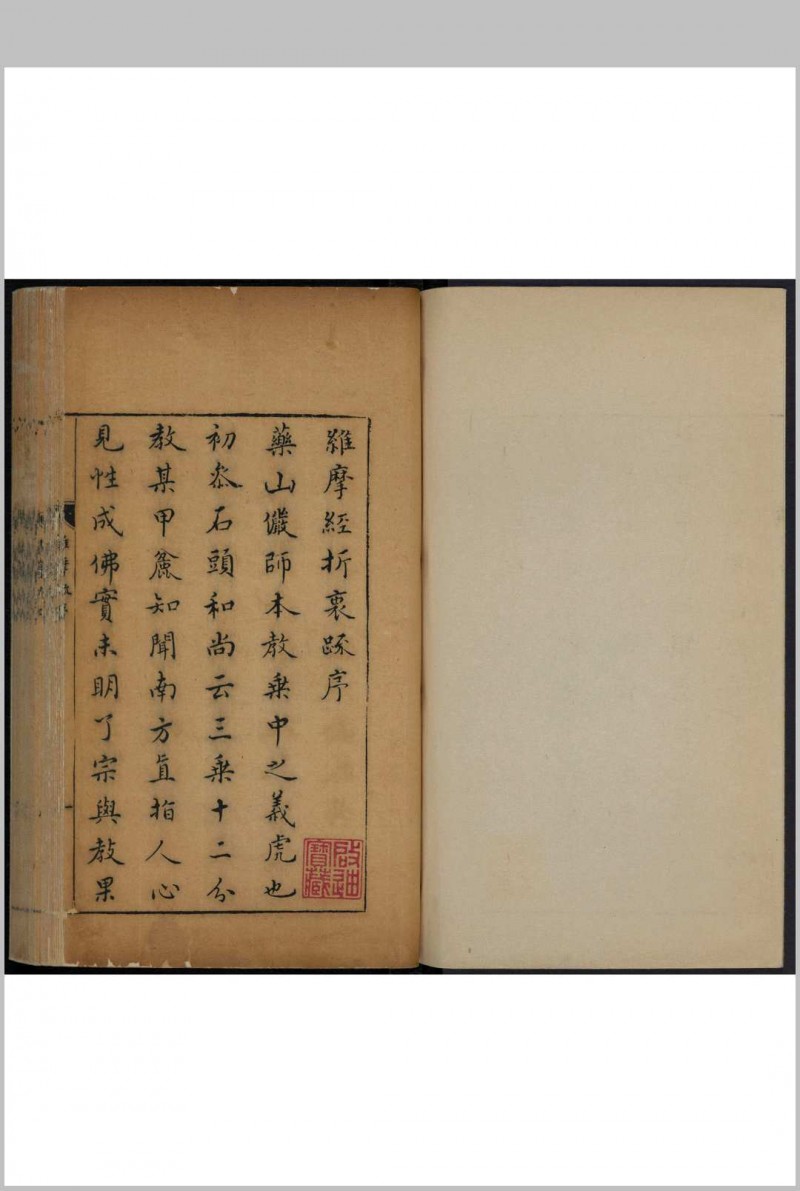 維摩經折衷疏序
藥山儼師本教乗中之義虎也
初叅石頭和尚云三乗十二分
教某甲麄知聞南方直指人心
見性成佛實未明了宗與教果
啟迪
寶藏